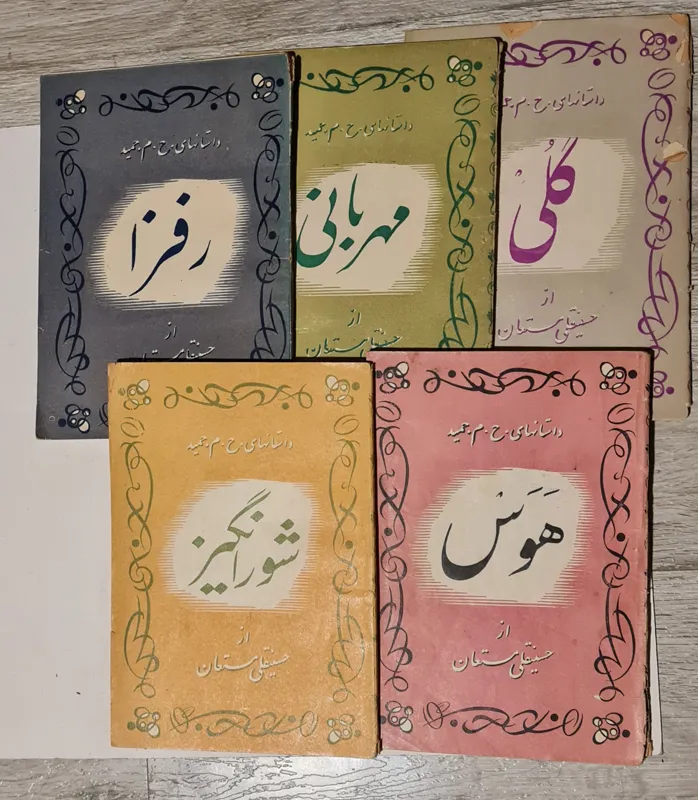 داستانهای . ح . م . حمید
گُلیْ
از
حسینقلی مستعان
داستانهای . ح . م . حمید
مهربانی
از
حسینقلی مستعان
داستانهای . ح . م . حمید
رفزا
از
حسینقلی مستعان
داستانهای . ح . م . حمید
هَوَسْ
از
حسینقلی مستعان
داستانهای . ح . م . حمید
شورانگیز
از
حسینقلی مستعان